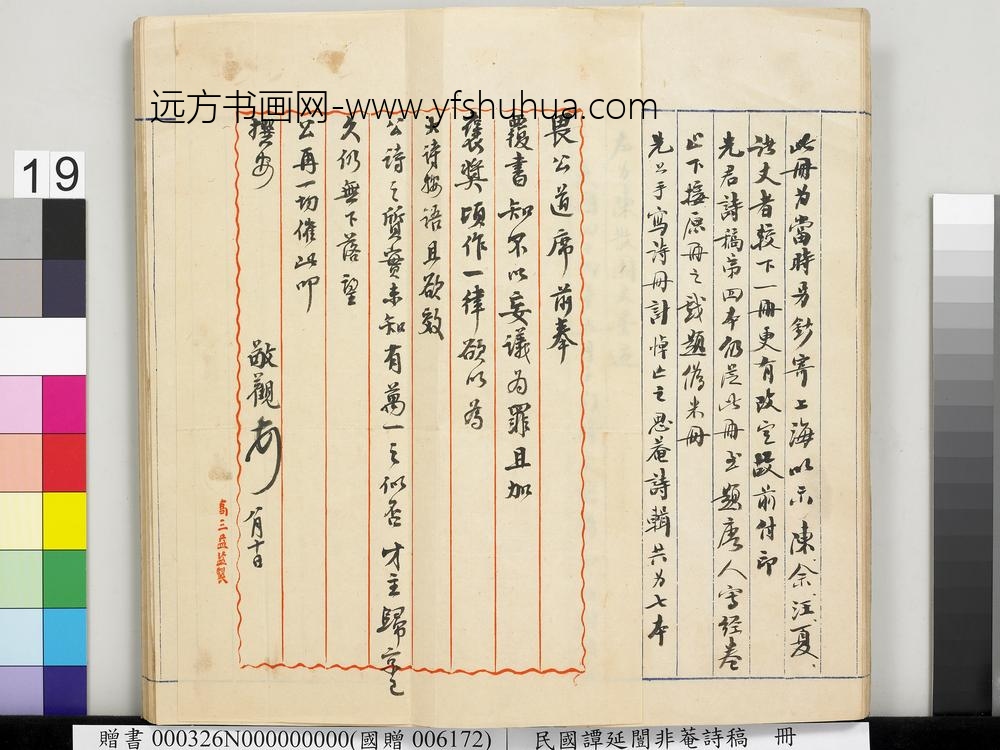 远方书画网-www.yfshuhua.com
此冊为當時另鈔寄上海以示陳余汪夏、
諸丈者較下一冊更有改定故前付印
先君詩稿第四本仍從此冊出題唐人寫经卷
止下接原冊之戲題偽米冊
先公手寫詩冊計悼亡之思菴詩輯共为七本
畏公道席前奉
覆書知不以妄議为罪且加
褒獎頃作一律欲以為
大詩按語且欲效
公詩之質實未知有萬一之似否 才主歸京已
久仍無下落望
公再一切催此叩
撰安
敬觀
八月十日
喜三益監製
19
贈書 000326N000000000(國贈 006172) 民國譚延闓非菴詩稿 冊